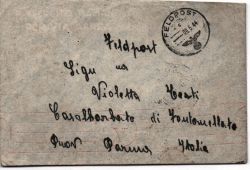 FELDPOST
19.5.44
Feldpost
Sign na
Violetta
Casalbarbato di Fontanellato
Prov Parma Italia